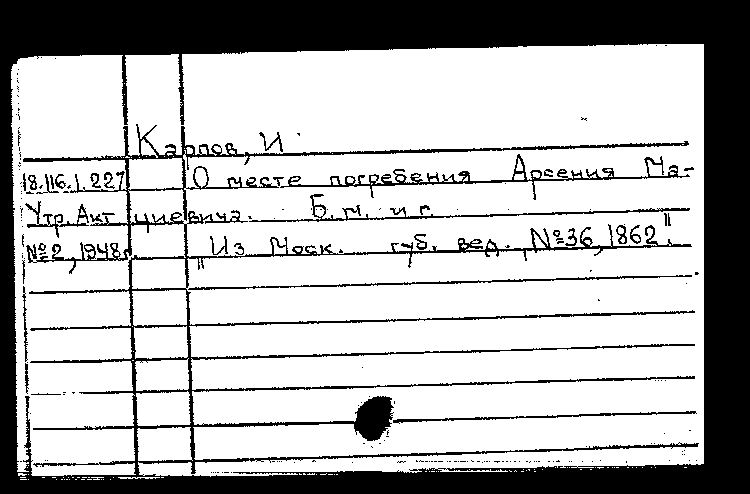 Карпов, И.
18.116.1.227 О месте погребения Арсения Ма-
Утр. Акт циевича. Б. м. и г.
№2, 1948г. "Из Моск. губ. вед., №36, 1862".